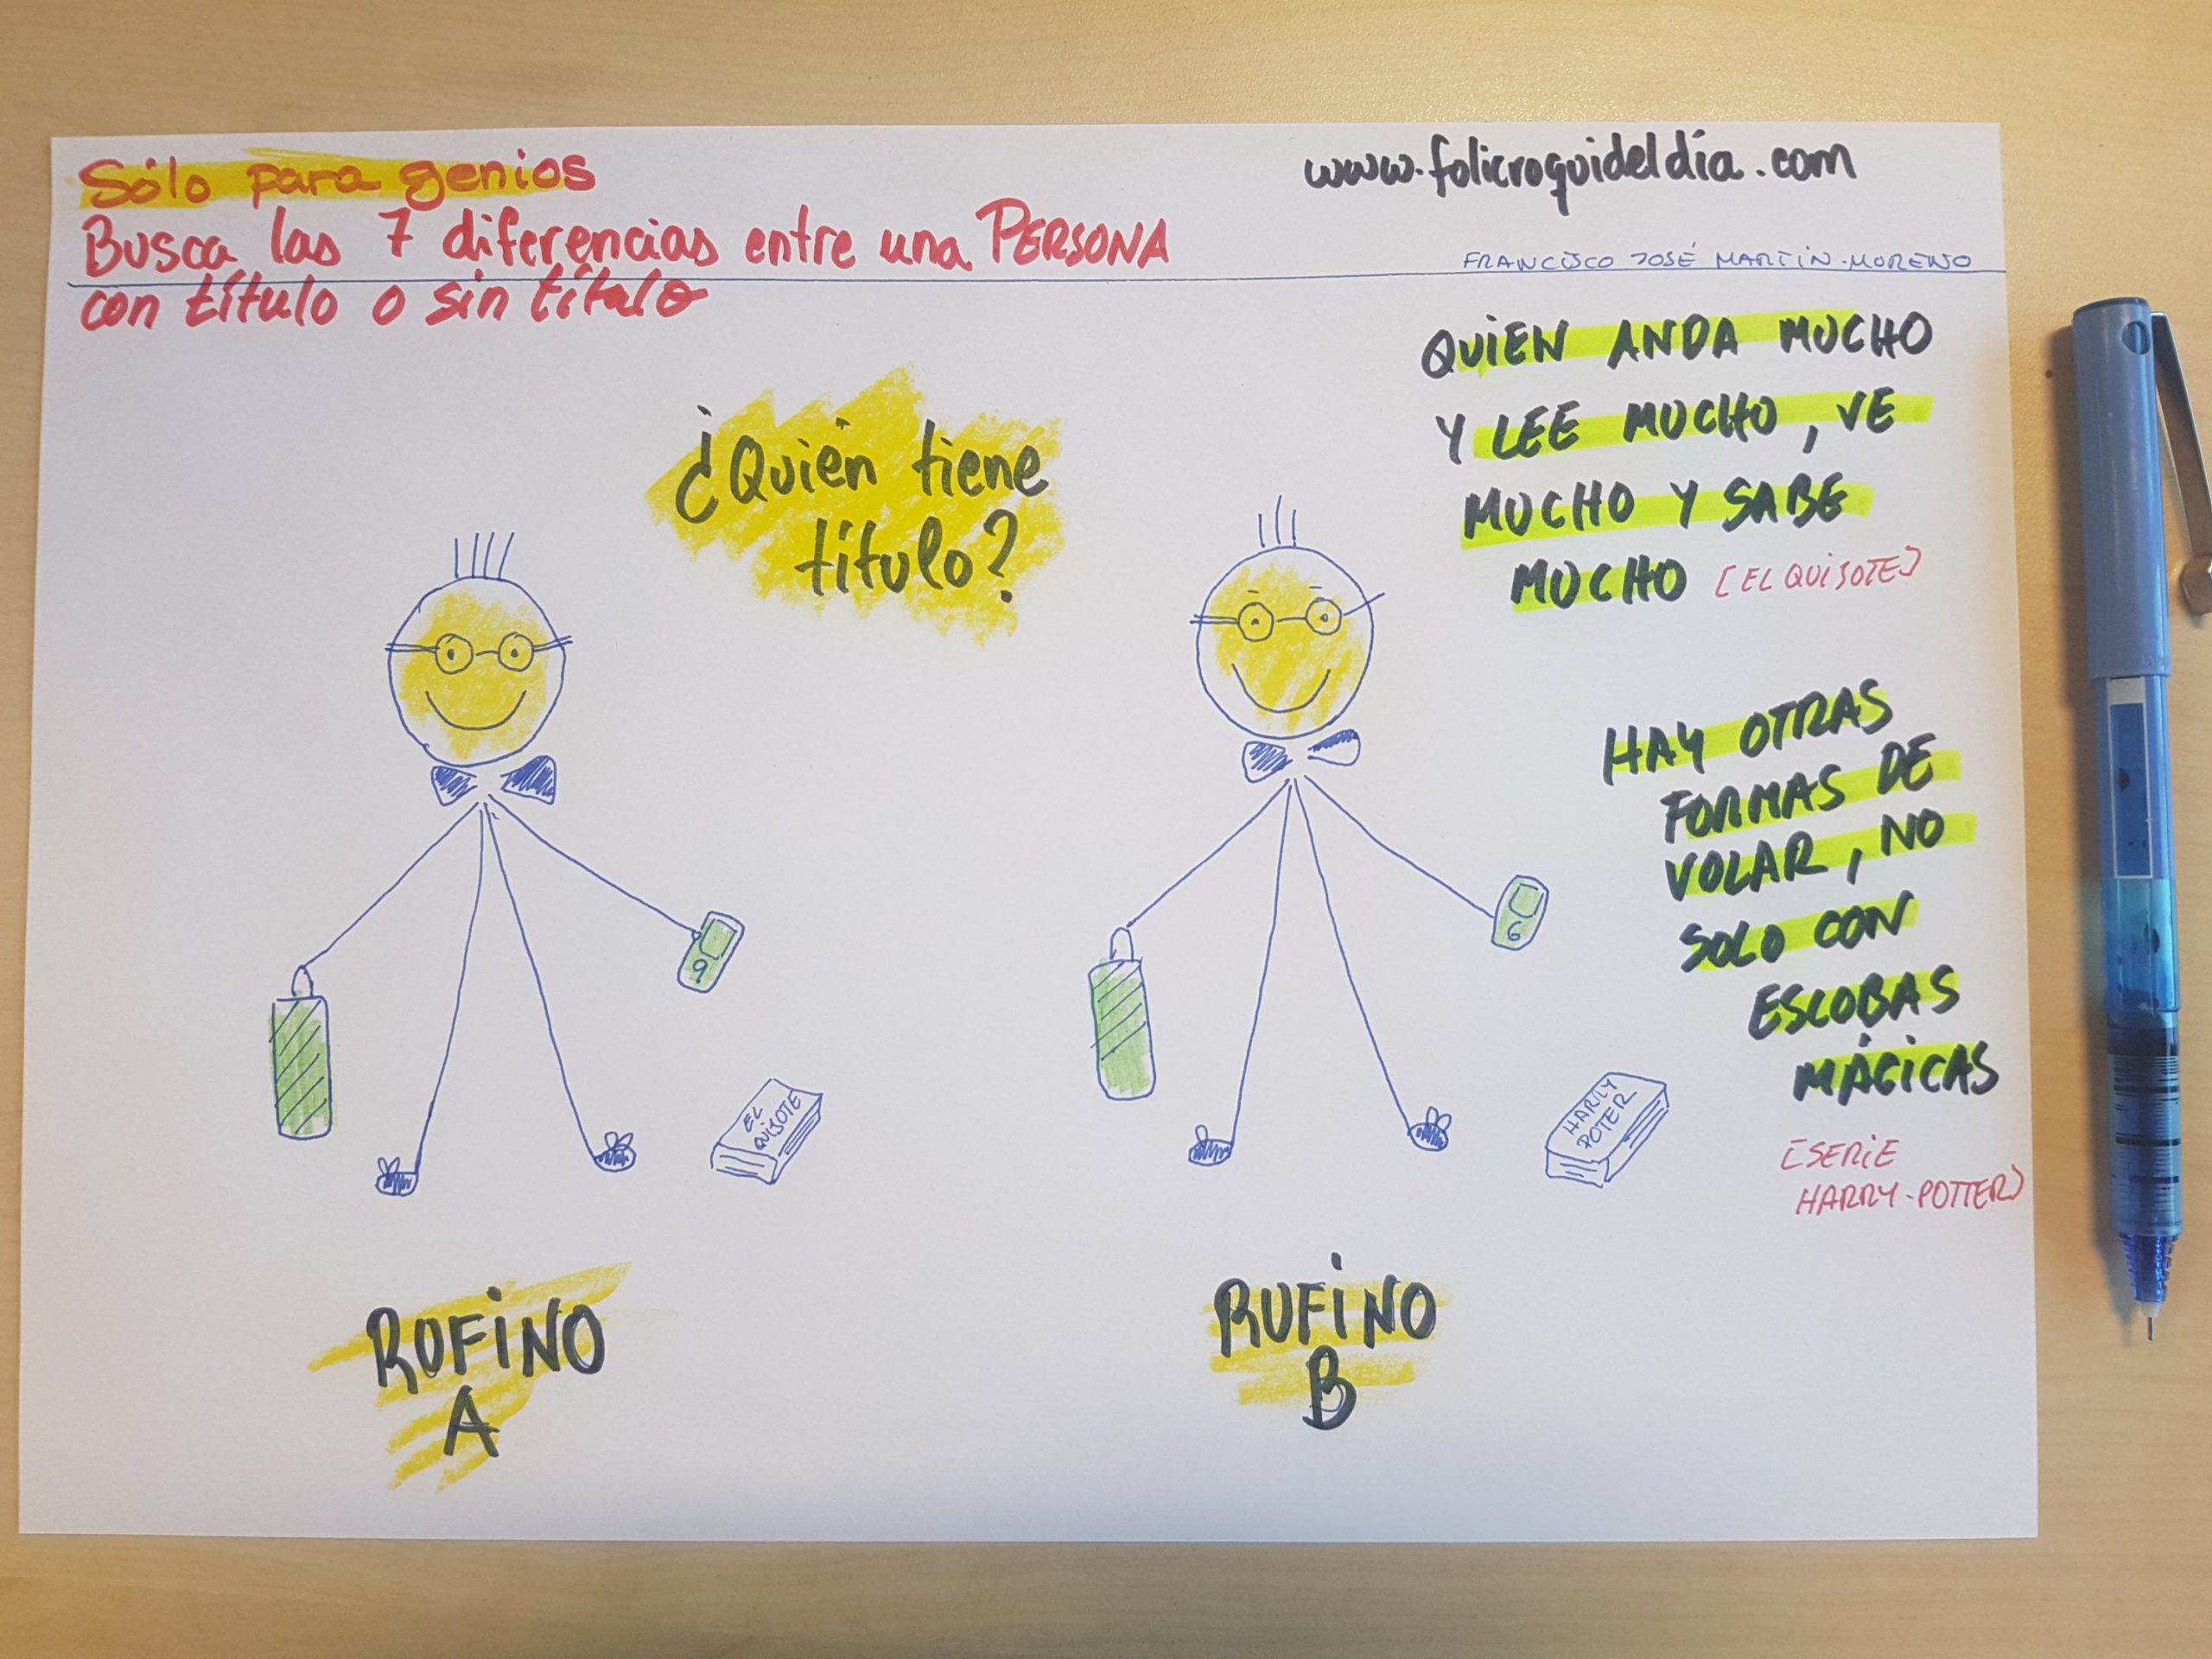 Sólo para genios
Busca las 7 diferencias entre una PERSONA
con título o sin título
www.folicroquideldía.com
FRANCISCO JOSÉ MARTÍN-MORENO
¿Quién tiene
título?
QUIEN ANDA MUCHO
Y LEE MUCHO, VE
MUCHO Y SABE
MUCHO [EL QUIJOTE]
HAY OTRAS
FORMAS DE
VOLAR, NO
SOLO CON
ESCOBAS
MÁGICAS
[SERIE
HARRY-POTTER]
9
EL
QUIJOTE
6
HARRY
POTER
RUFINO
A
RUFINO
B